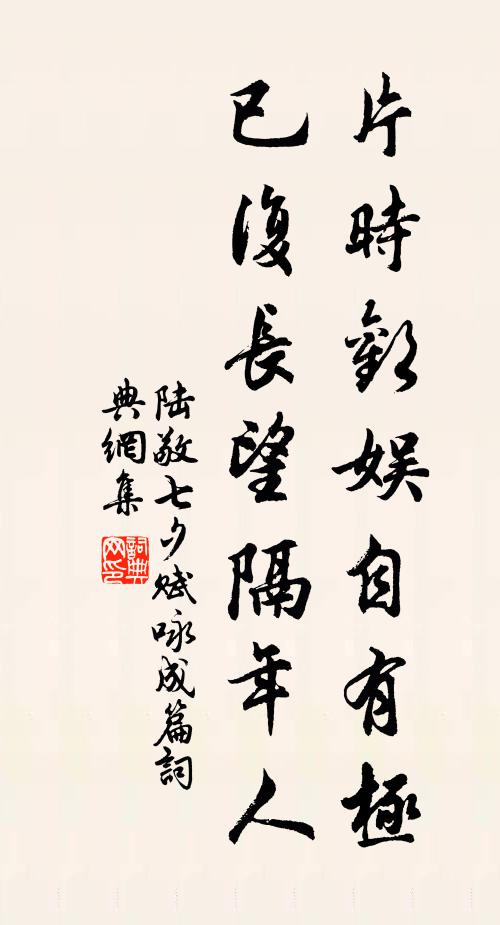 片時歡娛自有極
已復長望隔年人
陸敬七夕賦咏成篇詞
典網集
詞典网印